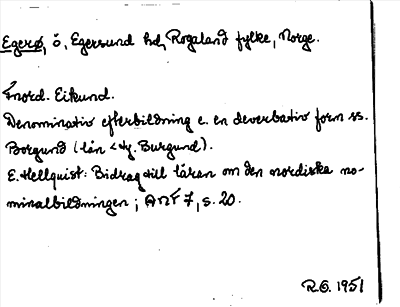 Egerø, ö, Egersund hd, Rogaland fylke, Norge.
fnord. Eikund.
Denominativ efterbildning e. en deverbativ form ss.
Borgund (lån < ty. Burgund).
E. Hellquist: Bidrag till läran om den nordiska no-
minalbildningen; ANF 7, s. 20.
R.G. 1951